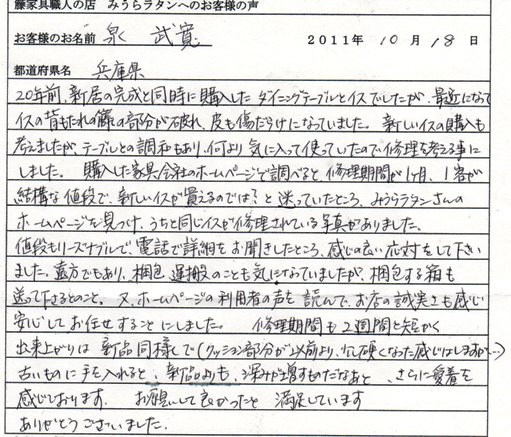 藤家具職人の店 みうらラタンへのお客様の声
お客様のお名前 泉 武寛 2011年 10月 18日
都道府県名 兵庫県
20年前、新居の完成と同時に購入したダイニングテーブルとイスでしたが、最近になって
イスの背もたれの籐の部分が破れ、皮も傷だらけになっていました。新しいイスの購入も
考えましたが、テーブルとの調和もあり、何より気に入って使っていたので修理を考える事に
しました。購入した家具会社のホームページで調べると修理期間が1ヶ月、1客が
結構な値段で、新しいイスが買えるのでは?と迷っていたところ、みうらラタンさんの
ホームページを見つけ、うちと同じイスが修理されている写真がありました。
値段もリーズナブルで、電話で詳細をお聞きしたところ、感じの良い応対をして下さい
ました。遠方でもあり、梱包、運搬のことも気になっていましたが、梱包する箱も
送って下さるとのこと。又、ホームページの利用者の声を読んで、お店の誠実さも感じ
安心してお任せすることにしました。修理期間も2週間と短かく
出来上がりは新品同様で(クッション部分が以前より、少し硬くなった感じはしますが…)
古いものに手を入れると、新品よりも、深みが増すものだなあと、さらに愛着を
感じております。お願いして良かったと満足しています
ありがとうございました。